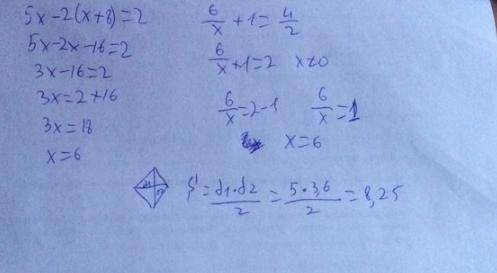 5x-2(x+8)=2
5x-2x-16=2
3x-16=2
3x=2+16
3x=18
x=6
6/x+1=4/2
6/x+1=2 x≠0
6/x=2-1 6/x=1
x=6
S=d1·d2/2=5·3,6/2=8,25